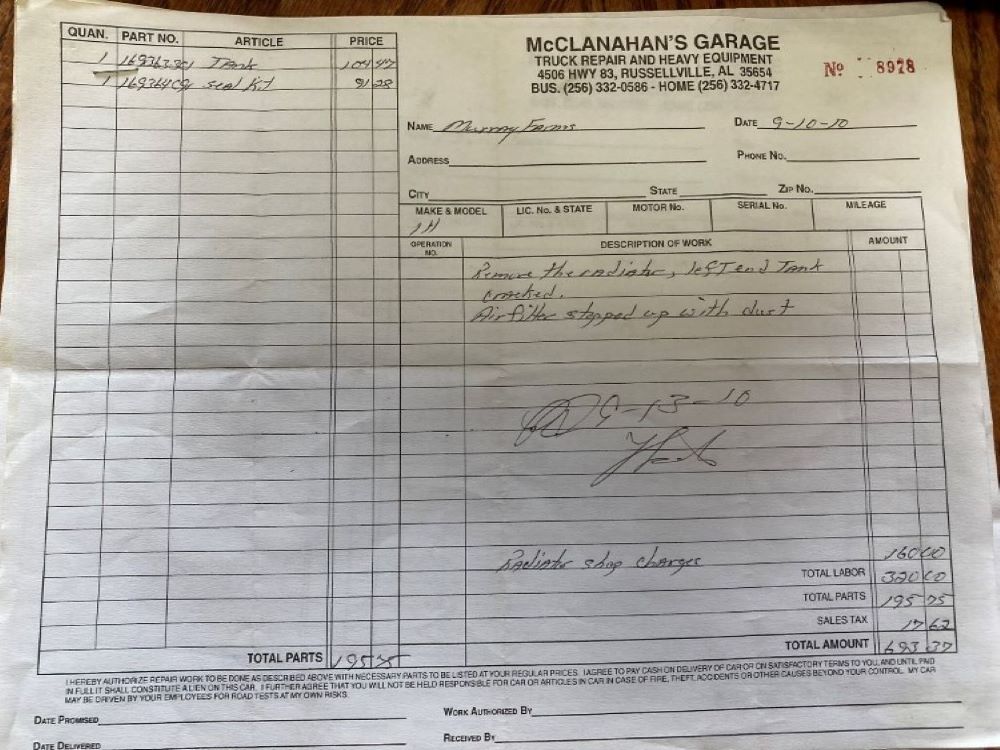 QUAN. PART NO. ARTICLE PRICE
1 Tank 104 47
1 seal kit 91 28
TOTAL PARTS 195 75
McCLANAHAN'S GARAGE
TRUCK REPAIR AND HEAVY EQUIPMENT
4506 HWY 83, RUSSELLVILLE, AL 35654
BUS. (256) 332-0586 - HOME (256) 332-4717
Nº 8978
NAME Murray Farms DATE 9-10-10
ADDRESS PHONE NO.
CITY STATE ZIP NO.
MAKE & MODEL LIC. No. & STATE MOTOR No. SERIAL No. MILEAGE
IH
OPERATION NO. DESCRIPTION OF WORK AMOUNT
Remove the radiator, left end Tank
cracked.
Air filter stopped up with dust
9-13-10
Radiator shop charges 160 00
TOTAL LABOR 320 00
TOTAL PARTS 195 75
SALES TAX 17 62
TOTAL AMOUNT 693 37
I HEREBY AUTHORIZE REPAIR WORK TO BE DONE AS DESCRIBED ABOVE WITH NECESSARY PARTS TO BE LISTED AT YOUR REGULAR PRICES. I AGREE TO PAY CASH ON DELIVERY OF CAR OR ON SATISFACTORY TERMS TO YOU, AND UNTIL PAID
IN FULL IT SHALL CONSTITUTE A LIEN ON THIS CAR. I FURTHER AGREE THAT YOU WILL NOT BE HELD RESPONSIBLE FOR CAR OR ARTICLES IN CAR IN CASE OF FIRE, THEFT, ACCIDENTS OR OTHER CAUSES BEYOND YOUR CONTROL. MY CAR
MAY BE DRIVEN BY YOUR EMPLOYEES FOR ROAD TESTS AT MY OWN RISKS.
DATE PROMISED WORK AUTHORIZED BY
DATE DELIVERED RECEIVED BY